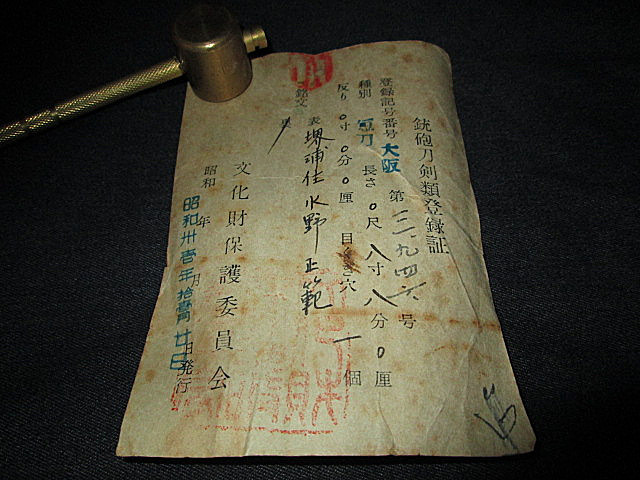 銃砲刀剣類登録証
登録記号番号 大阪 第三一九四六号
種別 短刀 長さ 〇尺八寸八分〇厘
反り 〇寸〇分〇厘 目くぎ穴 一個
銘文 表 堺浦住水野正範
裏
文化財保護委員会
昭和 年 月 日発行
昭和卅壱年拾